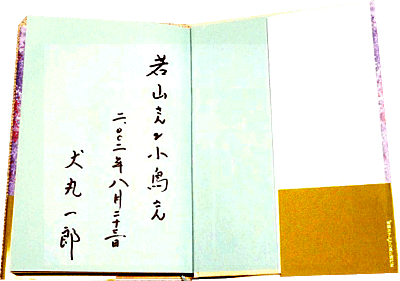 若山さんと小鳥さん
二〇〇二年八月二十三日
犬丸一郎